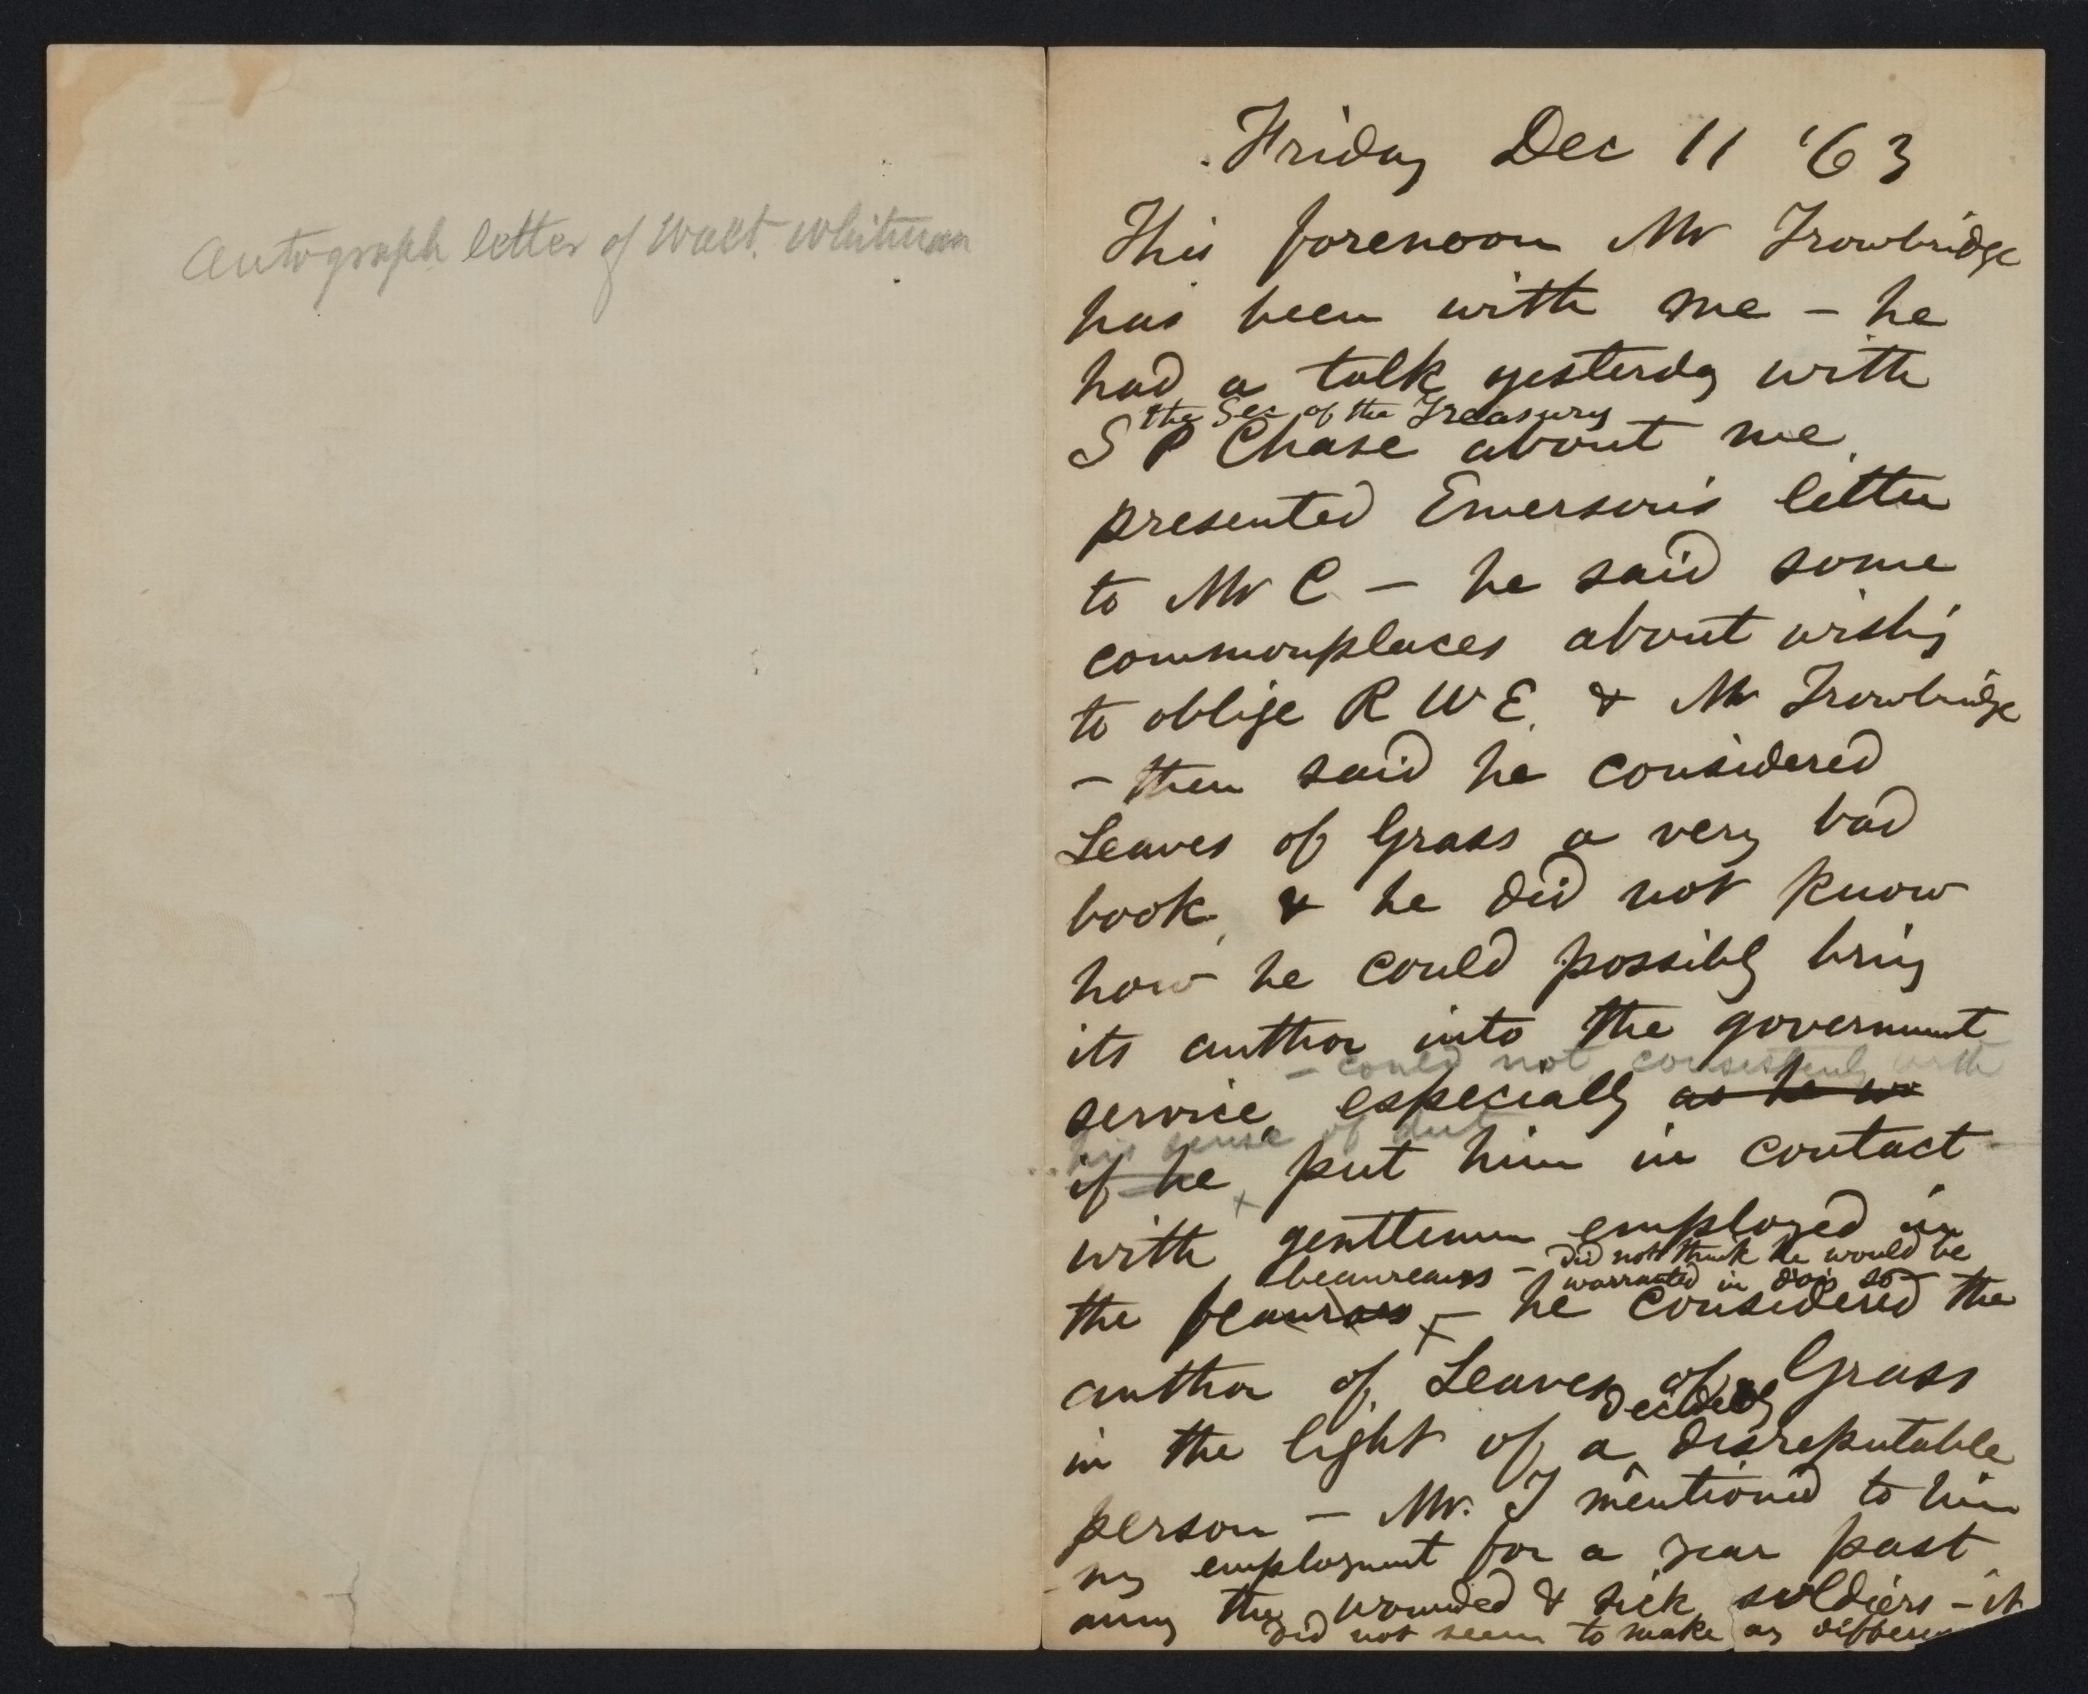 Autograph letter of Walt. Whitman
Friday Dec 11 '63
This forenoon Mr Trowbridge
has been with me – he
had a talk yesterday with
the Sec of the Treasury
S P Chase about me,
presented Emerson's letter
to Mr C – he said some
commonplaces about wishing
to oblige R W E. & Mr Trowbridge
– then said he considered
Leaves of Grass a very bad
book, & he did not know
how he could possibly bring
its author into the government
– could not consistently with
service, especially as he wo
his sense of duty
if he put him in contact
with gentlemen employed in
did not think he would be
beaureaus – warranted in doing so –
the beauraes – he considered the
author of Leaves of Grass
decidedly
in the light of a disreputable
person – Mr. T mentioned to him
my employment for a year past
among the wounded & sick soldiers – it
did not seem to make any